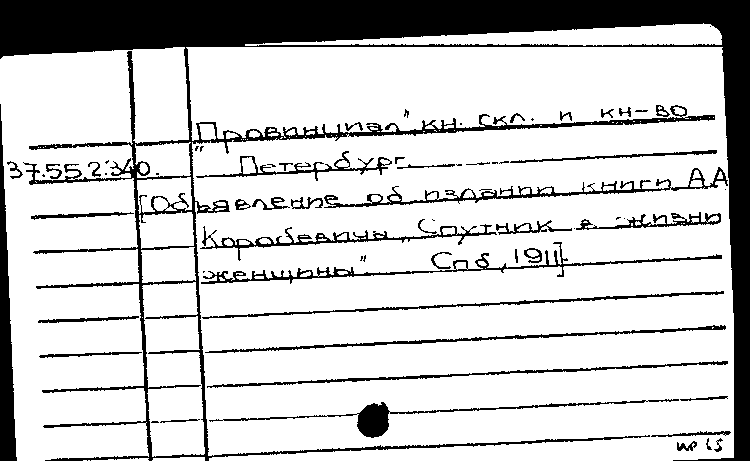 „Провинциал", кн. скл. и кн-во
37.55.2.340. Петербург.
[Объявление об издании книги А.А
Коробевичи „Спутник в жизни
женщины". Спб, 1911].